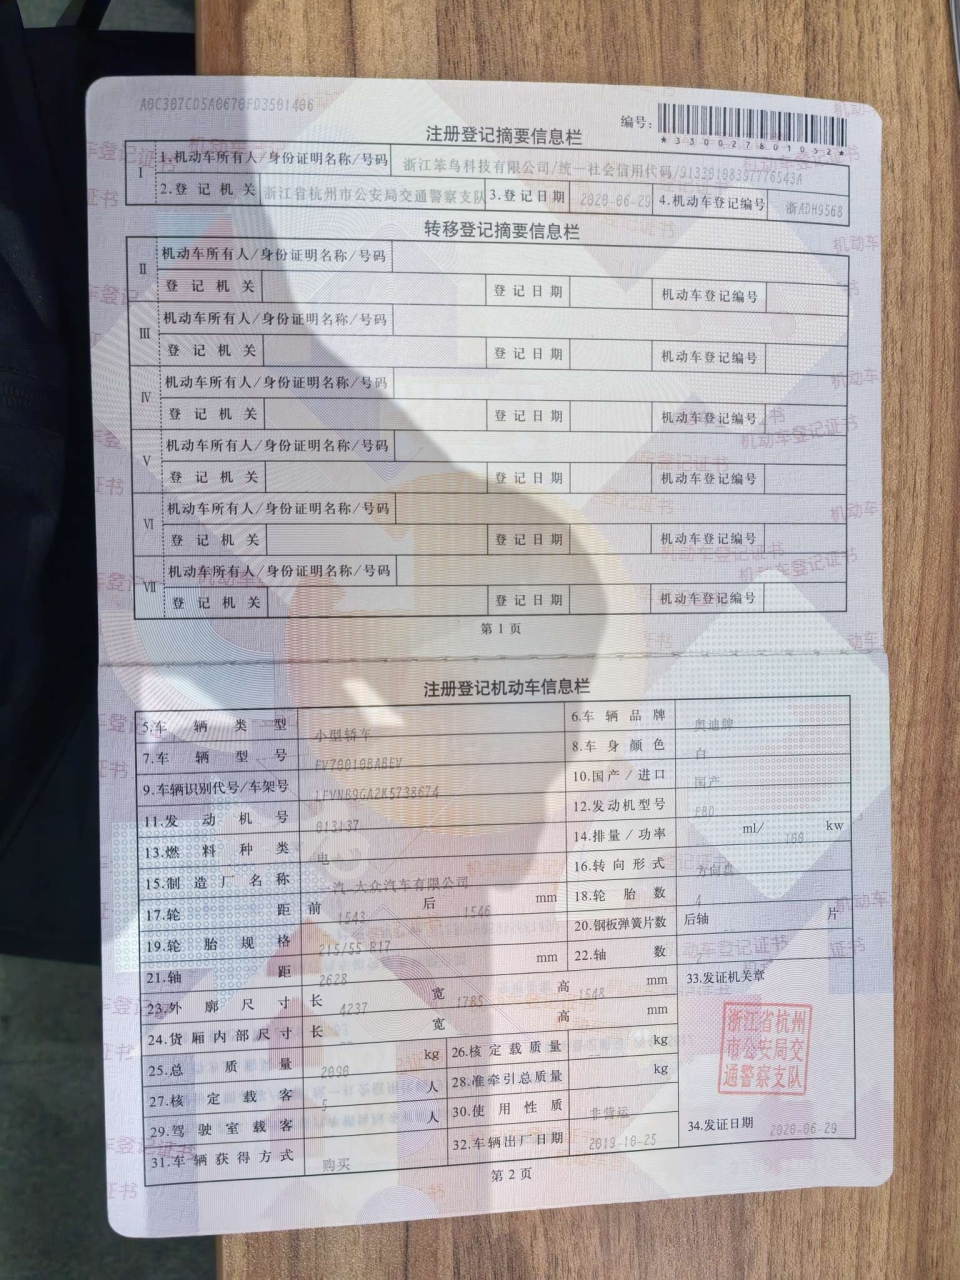 A0C307CD5A0670FD3501406
编号：
*330027801052*
注册登记摘要信息栏
I 1.机动车所有人/身份证明名称/号码 浙江笨鸟科技有限公司/统一社会信用代码/
2.登记机关 浙江省杭州市公安局交通警察支队 3.登记日期 2020-06-29 4.机动车登记编号 浙ADH9568
转移登记摘要信息栏
II 机动车所有人/身份证明名称/号码
登记机关 登记日期 机动车登记编号
III 机动车所有人/身份证明名称/号码
登记机关 登记日期 机动车登记编号
IV 机动车所有人/身份证明名称/号码
登记机关 登记日期 机动车登记编号
V 机动车所有人/身份证明名称/号码
登记机关 登记日期 机动车登记编号
VI 机动车所有人/身份证明名称/号码
登记机关 登记日期 机动车登记编号
VII 机动车所有人/身份证明名称/号码
登记机关 登记日期 机动车登记编号
第 1 页
注册登记机动车信息栏
5.车辆类型 小型轿车 6.车辆品牌 奥迪牌
7.车辆型号 FV7001BABEV 8.车身颜色 白
9.车辆识别代号/车架号 LFVNB9GA2K5738674 10.国产/进口 国产
11.发动机号 013137 12.发动机型号 EBD
13.燃料种类 电 14.排量/功率 ml/ 100 kw
15.制造厂名称 一汽-大众汽车有限公司 16.转向形式 方向盘
17.轮距 前 1543 后 1546 mm 18.轮胎数 4
19.轮胎规格 215/55 R17 20.钢板弹簧片数 后轴 片
21.轴距 2628 mm 22.轴数
23.外廓尺寸 长 4237 宽 1785 高 1548 mm 33.发证机关章
24.货厢内部尺寸 长 宽 高 mm
25.总质量 2090 kg 26.核定载质量 kg
27.核定载客 5 人 28.准牵引总质量 kg
29.驾驶室载客 人 30.使用性质 非营运
31.车辆获得方式 购买 32.车辆出厂日期 2019-10-25 34.发证日期 2020-06-29
浙江省杭州
市公安局交
通警察支队
第 2 页